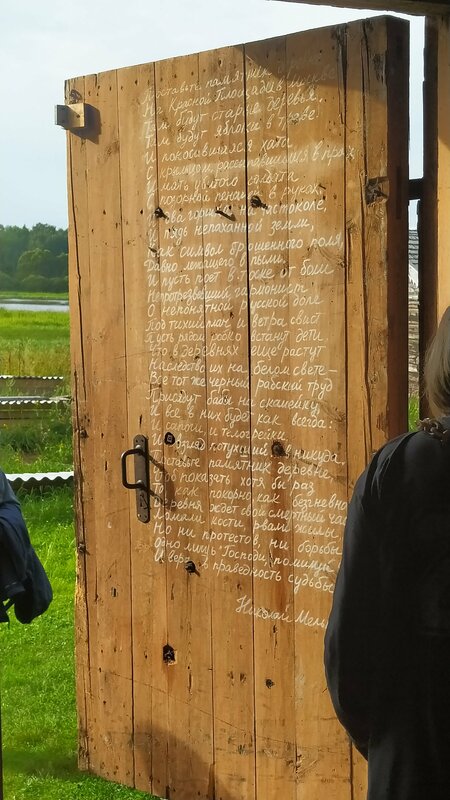 Поставьте памятник
На Красной Площади в Москве
Там будут старые деревья,
Там будут яблоки в траве.
И покосившаяся хата
С крыльцом, рассыпавшимся в прах
И мать убитого солдата
С позорной пенсией в руках.
два горшка на частоколе,
И пядь непаханной земли,
Как символ брошенного поля,
Давно лежащего в пыли.
И пусть поет в тоске от боли
Непротрезвевший гармонист
О непонятной русской доле
Под тихий плач и ветра свист
Пусть рядом робко встанут дети
Что в деревнях еще растут
Наследство их на белом свете —
Все тот же черный рабский труд
Присядут бабы на скамейку,
И все в них будет как всегда:
И сапоги и телогрейки,
И взгляд потухший в никуда,
Поставьте памятник деревне,
Чтоб показать хотя бы раз
То, как покорно, как безгневно
Деревня ждет свой смертный час
Ломали кости, рвали жилы
Но ни протестов, ни борьбы
Одно лишь "Господи, помилуй"
И вера в праведность судьбы
Николай Мель